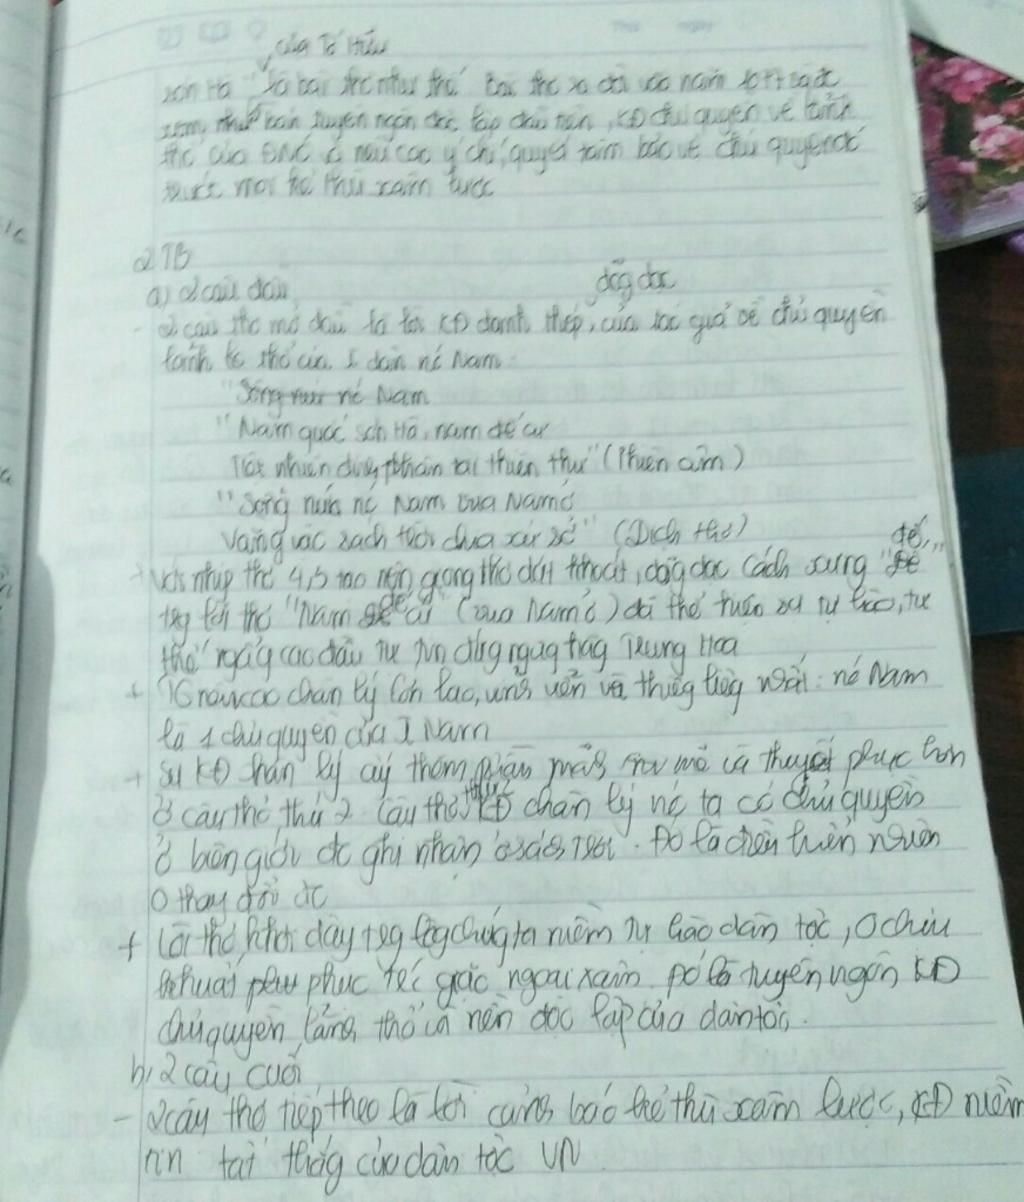 của Tố Hữu
sơn Hà là bài thơ như thế. Bài thơ ra đời vào năm
xem như bản tuyên ngôn độc lập đầu tiên, KĐ chủ quyền về lãnh
thổ của ĐNC & nêu cao ý chí quyết tâm bảo vệ chủ quyền đó
trước mọi kẻ thù xâm lược
2 TB
a) 2 câu đầu
dõg dạc
- 2 câu thơ mở đầu là lời KĐ đanh thép, của tác giả về chủ quyền
lãnh thổ của dân nc Nam:
"Sông núi nc Nam
"Nam quốc sơn Hà, nam đế cư
Tiệt nhiên định phận tại thiên thư" (Phiên âm)
"Sông núi nc Nam vua Nam ở
Vằng vặc sách trời chia xứ sở" (Dịch thơ)
đế"
nhịp thơ 4/3 tạo nên giọng thơ dứt khoát, dõg dạc cách xưng "Đế
trg lời thơ "Nam đế cư (vua Nam ở) đã thể hiện sự tự hào, tư
thế ngẩg cao đầu tự tin đứg ngag hàg Trung Hoa
+ Tg nêu cao chân lý lớn lao, vững vền và thiêg liêg nhất: nc Nam
là 1 chủ quyền của Nam
+ Sự KĐ chân lý ấy thêm phần mạnh mẽ và thuyết phục hơn
ở câu thơ thứ 2. Câu thơ KĐ chân lý nc ta có chủ quyền
ở biên giới đc ghi nhận ở sách trời. Đó là điều hiển nhiên
0 thay đổi đc
+ Lời thơ khơi dậy trg lòg chúg ta niềm tự hào dân tộc, 0 chịu
khuất phục trc giặc ngoại xâm. Đó là tuyên ngôn KĐ
chủ quyền, lãnh thổ và nền độc lập của dân tộc.
b, 2 câu cuối
- 2 câu thơ tiếp theo là lời cảnh báo kẻ thù xâm lược, KĐ niềm
tin tất thắg của dân tộc VN